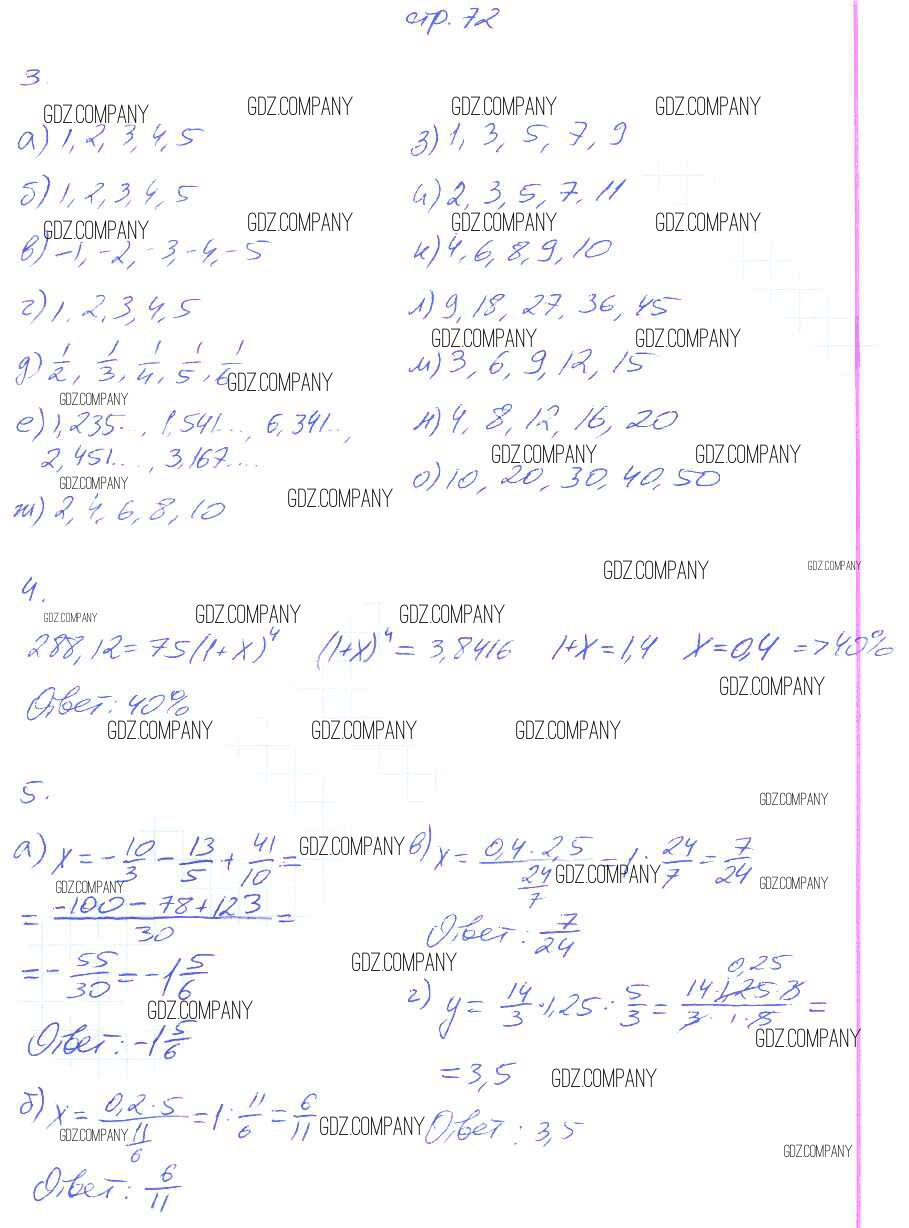 стр. 72
3.
GDZ.COMPANY GDZ.COMPANY GDZ.COMPANY GDZ.COMPANY
а) 1, 2, 3, 4, 5
б) 1, 2, 3, 4, 5
GDZ.COMPANY GDZ.COMPANY
в) -1, -2, -3, -4, -5
г) 1, 2, 3, 4, 5
д) 1/2, 1/3, 1/4, 1/5, 1/6
GDZ.COMPANY
GDZ.COMPANY
е) 1,235..., 1,541..., 6,341...,
2,451..., 3,167....
GDZ.COMPANY GDZ.COMPANY
ж) 2, 4, 6, 8, 10
з) 1, 3, 5, 7, 9
и) 2, 3, 5, 7, 11
GDZ.COMPANY GDZ.COMPANY
к) 4, 6, 8, 9, 10
л) 9, 18, 27, 36, 45
GDZ.COMPANY GDZ.COMPANY
м) 3, 6, 9, 12, 15
н) 4, 8, 12, 16, 20
GDZ.COMPANY GDZ.COMPANY
о) 10, 20, 30, 40, 50
GDZ.COMPANY GDZ.COMPANY
4.
GDZ.COMPANY GDZ.COMPANY GDZ.COMPANY
288,12 = 75(1+x)^4 (1+x)^4 = 3,8416 1+x = 1,4 x = 0,4 => 40%
GDZ.COMPANY
Ответ: 40%
GDZ.COMPANY GDZ.COMPANY GDZ.COMPANY
5.
GDZ.COMPANY
а) x = -10/3 - 13/5 + 41/10 =
GDZ.COMPANY
GDZ.COMPANY
= (-100 - 78 + 123)/30 =
= -55/30 = -1 5/6
GDZ.COMPANY
Ответ: -1 5/6
б) x = (0,2 · 5)/(11/6) = 1 : 11/6 = 6/11
GDZ.COMPANY GDZ.COMPANY
Ответ: 6/11
в) x = (0,4 · 2,5)/(24/7) = 1 : 24/7 = 7/24
GDZ.COMPANY GDZ.COMPANY
Ответ: 7/24
GDZ.COMPANY
0,25
г) y = 14/3 · 1,25 : 5/3 = (14 · 1,25 · 3)/(3 · 1 · 5) =
GDZ.COMPANY
= 3,5
GDZ.COMPANY
Ответ: 3,5
GDZ.COMPANY